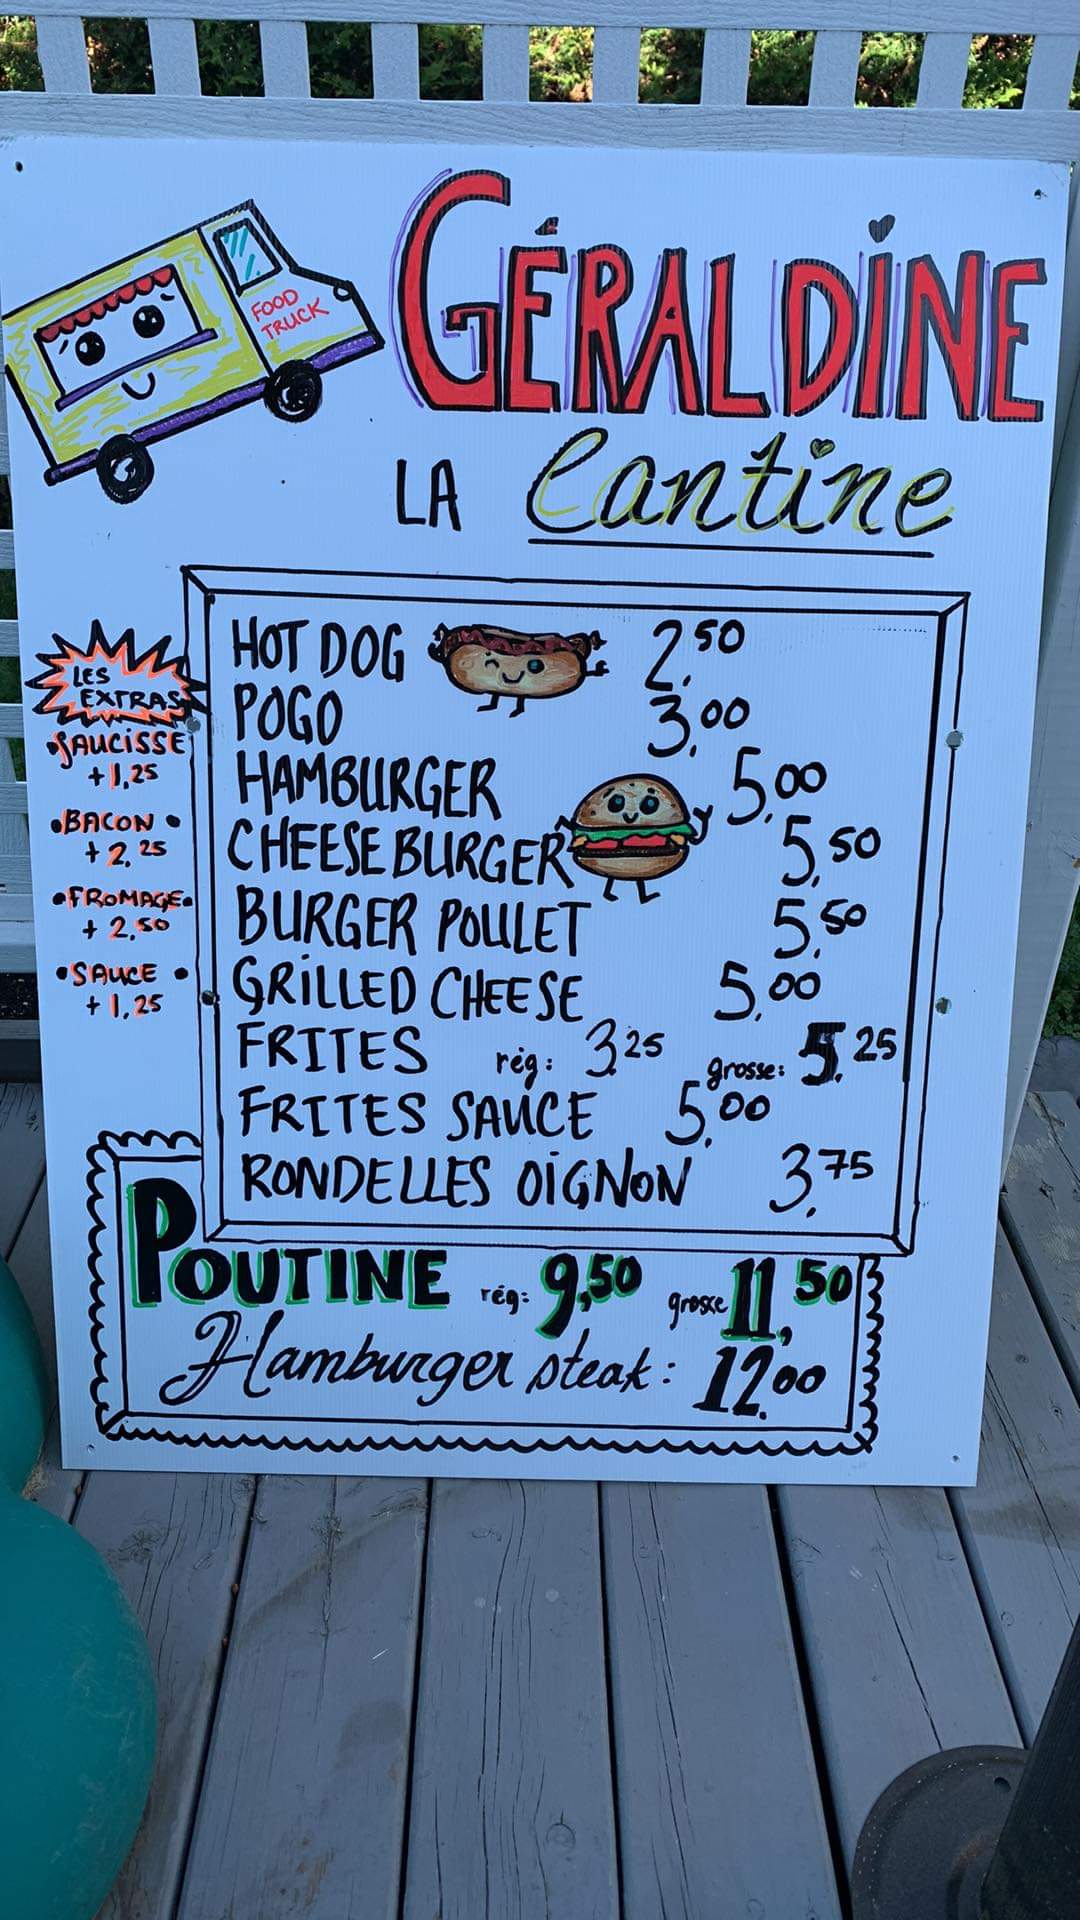 FOOD
TRUCK
GÉRALDINE
LA Cantine
LES
EXTRAS
•SAUCISSE
+1,25
•BACON•
+2,25
•FROMAGE•
+2,50
•SAUCE•
+1,25
HOT DOG 2,50
POGO 3,00
HAMBURGER 5,00
CHEESEBURGER 5,50
BURGER POULET 5,50
GRILLED CHEESE 5,00
FRITES rég: 3,25 grosse: 5,25
FRITES SAUCE 5,00
RONDELLES OIGNON 3,75
POUTINE rég: 9,50 grosse 11,50
Hamburger steak: 12,00